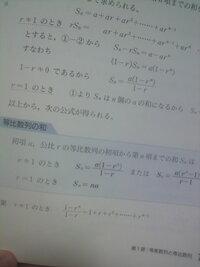 Sₙ = a + ar + ar² + …… +
r ≠ 1 のとき rSₙ = ar + ar² + …… +
とすると，①−② から Sₙ − rSₙ = a − arⁿ
すなわち (1−r)Sₙ = a(1−rⁿ)
1−r ≠ 0 であるから Sₙ = a(1−rⁿ)/1−r
r = 1 のとき ①より Sₙ は n 個の a の和になるから
以上から，次の公式が得られる。
等比数列の和
初項 a，公比 r の等比数列の初項から第 n 項までの和 Sₙ は
r ≠ 1 のとき Sₙ = a(1−rⁿ)/1−r または Sₙ = a(rⁿ−1)/r−1
r = 1 のとき Sₙ = na
r ≠ 1 のとき 1−rⁿ/1−r = 1 + r + r² + …… +
第1節 等差数列と等比数列